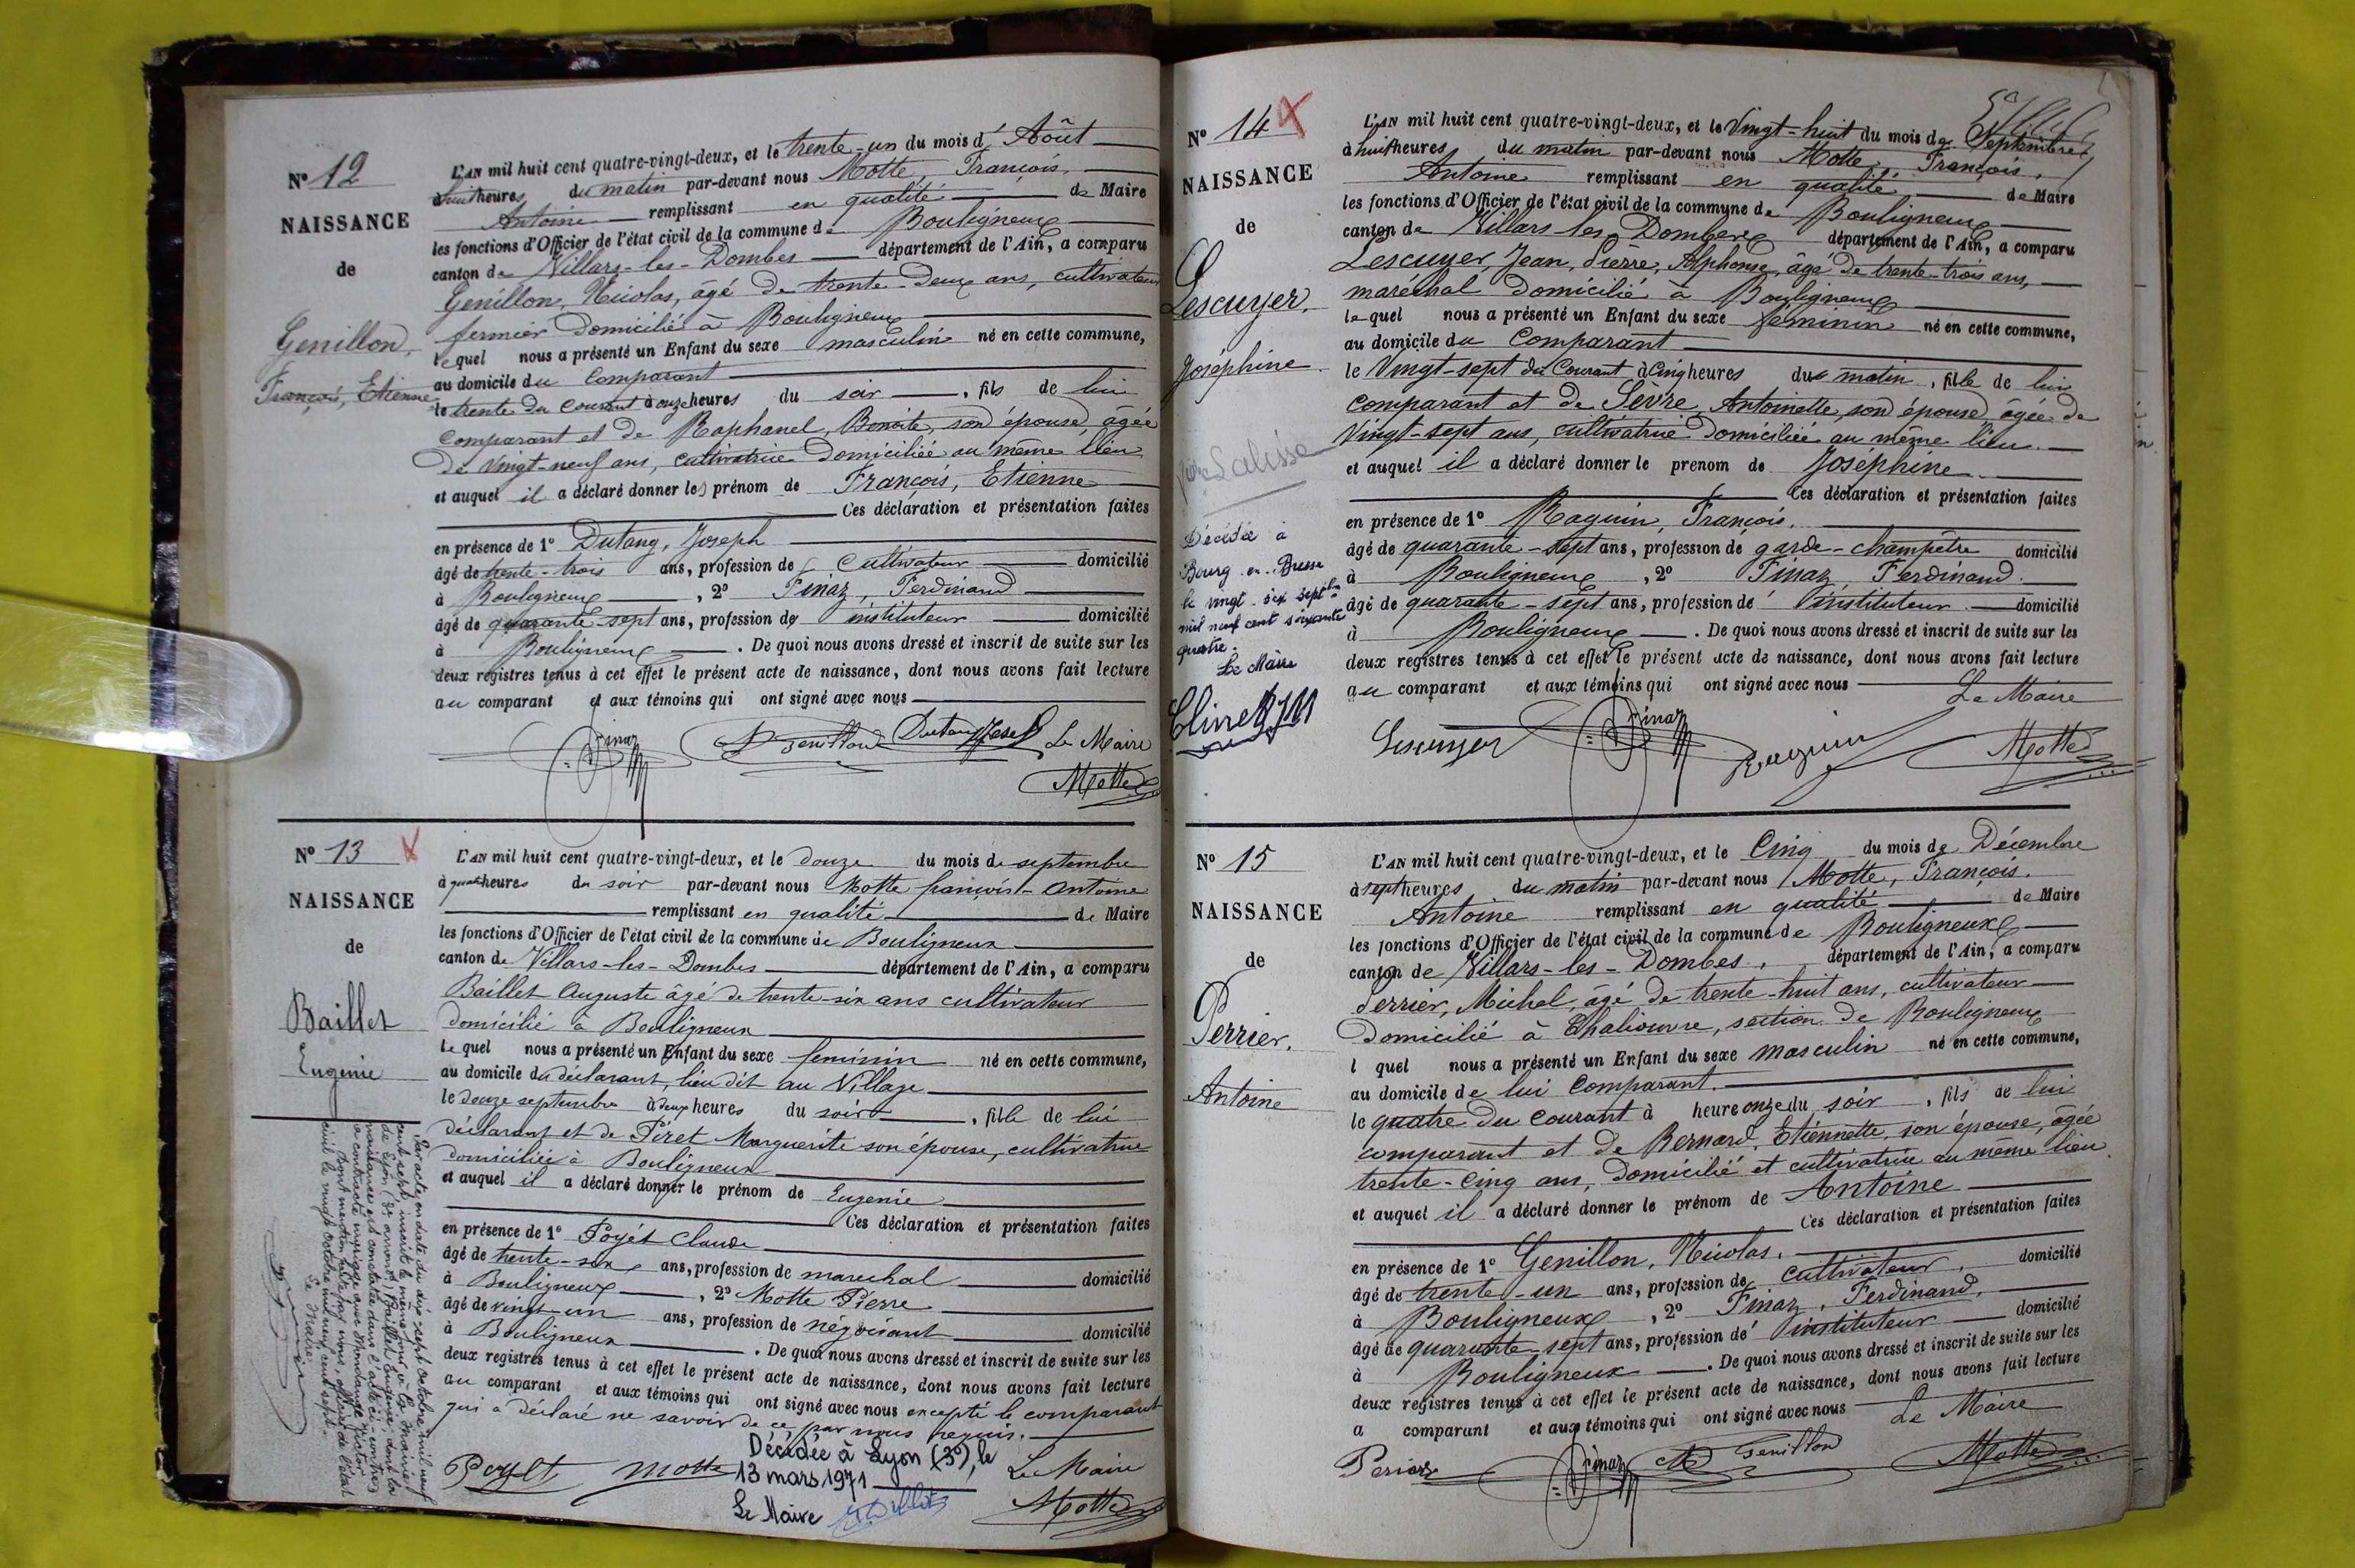 N° 12
NAISSANCE
de
Genillon,
François, Etienne
L'AN mil huit cent quatre-vingt-deux, et le trente-un du mois d' Août
à huit heures du matin par-devant nous Motte, François,
Antoine remplissant en qualité de Maire
les fonctions d'Officier de l'état civil de la commune de Bouligneux
canton de Villars-les-Dombes département de l'Ain, a comparu
Genillon, Nicolas, âgé de trente-deux ans, cultivateur
fermier domicilié à Bouligneux
lequel nous a présenté un Enfant du sexe masculin né en cette commune,
au domicile du Comparant
le trente du Courant à onze heures du soir, fils de lui
Comparant et de Raphanel, Benoîte, son épouse, âgée
de vingt-neuf ans, cultivatrice domiciliée au même lieu
et auquel il a déclaré donner les prénom de François, Etienne
Ces déclaration et présentation faites
en présence de 1° Dutang, Joseph
âgé de trente-trois ans, profession de Cultivateur domicilié
à Bouligneux, 2° Finaz, Ferdinand
âgé de quarante-sept ans, profession de instituteur domicilié
à Bouligneux. De quoi nous avons dressé et inscrit de suite sur les
deux registres tenus à cet effet le présent acte de naissance, dont nous avons fait lecture
au comparant et aux témoins qui ont signé avec nous
Finaz Genillon Dutang Joseph Le Maire
Motte
N° 13
NAISSANCE
de
Baillet
Eugénie
L'AN mil huit cent quatre-vingt-deux, et le douze du mois de septembre
à quatre heures du soir par-devant nous Motte françois-Antoine
remplissant en qualité de Maire
les fonctions d'Officier de l'état civil de la commune de Bouligneux
canton de Villars-les-Dombes département de l'Ain, a comparu
Baillet Auguste âgé de trente-six ans cultivateur
domicilié à Bouligneux
lequel nous a présenté un Enfant du sexe feminin né en cette commune,
au domicile du déclarant, lieu dit au Village
le douze septembre à deux heures du soir, fille de lui
déclarant et de Péret Marguerite son épouse, cultivatrice
domiciliée à Bouligneux
et auquel il a déclaré donner le prénom de Eugenie
Ces déclaration et présentation faites
en présence de 1° Poyet Claude
âgé de trente-six ans, profession de marechal domicilié
à Bouligneux, 2° Motte Pierre
âgé de vingt-un ans, profession de négociant domicilié
à Bouligneux. De quoi nous avons dressé et inscrit de suite sur les
deux registres tenus à cet effet le présent acte de naissance, dont nous avons fait lecture
au comparant et aux témoins qui ont signé avec nous excepté le comparant
qui a déclaré ne savoir de ce par nous requis.
Poyet Motte Le Maire
Motte
Décédée à Lyon (3e), le
13 mars 1971
Le Maire
Par acte, en date du dix-sept octobre mil neuf
cent sept inscrit le même jour à la Mairie
de Lyon (3e arrond.) Baillet Eugénie, dont la
naissance est constatée dans l'acte ci-contre,
a contracté mariage avec
Dont mention faite par nous, officier de l'état
civil le vingt octobre mil neuf cent sept.
Le Maire,
N° 14
NAISSANCE
de
Lescuyer,
Joséphine
Décédée à
Bourg-en-Bresse
le vingt-six sept
mil neuf cent soixante
quatre.
Le Maire
L'AN mil huit cent quatre-vingt-deux, et le Vingt-huit du mois de Septembre
à huit heures du matin par-devant nous Motte, François,
Antoine remplissant en qualité de Maire
les fonctions d'Officier de l'état civil de la commune de Bouligneux
canton de Villars-les-Dombes département de l'Ain, a comparu
Lescuyer, Jean, Pierre, Alphonse, âgé de trente-trois ans,
maréchal domicilié à Bouligneux
lequel nous a présenté un Enfant du sexe féminin né en cette commune,
au domicile du Comparant
le Vingt-sept du Courant à Cinq heures du matin, fille de lui
comparant et de Sèvre, Antoinette, son épouse, âgée de
Vingt-sept ans, cultivatrice domiciliée au même lieu.
et auquel il a déclaré donner le prenom de Joséphine
Ces déclaration et présentation faites
en présence de 1° Raguin, François,
âgé de quarante-sept ans, profession de garde-champêtre domicilié
à Bouligneux, 2° Finaz, Ferdinand.
âgé de quarante-sept ans, profession de instituteur domicilié
à Bouligneux. De quoi nous avons dressé et inscrit de suite sur les
deux registres tenus à cet effet le présent acte de naissance, dont nous avons fait lecture
au comparant et aux témoins qui ont signé avec nous
Le Maire
Lescuyer Finaz Raguin Motte
N° 15
NAISSANCE
de
Perrier,
Antoine
L'AN mil huit cent quatre-vingt-deux, et le Cinq du mois de Décembre
à sept heures du matin par-devant nous Motte, François.
Antoine remplissant en qualité de Maire
les fonctions d'Officier de l'état civil de la commune de Bouligneux
canton de Villars-les-Dombes, département de l'Ain, a comparu
Perrier, Michel, âgé de trente-huit ans, cultivateur
domicilié à Chaliouvre, section de Bouligneux
l quel nous a présenté un Enfant du sexe masculin né en cette commune,
au domicile de lui Comparant.
le quatre du courant à heure onze du soir, fils de lui
comparant et de Bernard, Etiennette, son épouse, âgée
trente-cinq ans, domicilié et cultivatrice au même lieu.
et auquel il a déclaré donner le prénom de Antoine
Ces déclaration et présentation faites
en présence de 1° Genillon, Nicolas.
âgé de trente-un ans, profession de cultivateur, domicilié
à Bouligneux, 2° Finaz, Ferdinand,
âgé de quarante-sept ans, profession de instituteur domicilié
à Bouligneux. De quoi nous avons dressé et inscrit de suite sur les
deux registres tenus à cet effet le présent acte de naissance, dont nous avons fait lecture
a comparant et aux témoins qui ont signé avec nous
Le Maire
Perier Finaz Genillon Motte